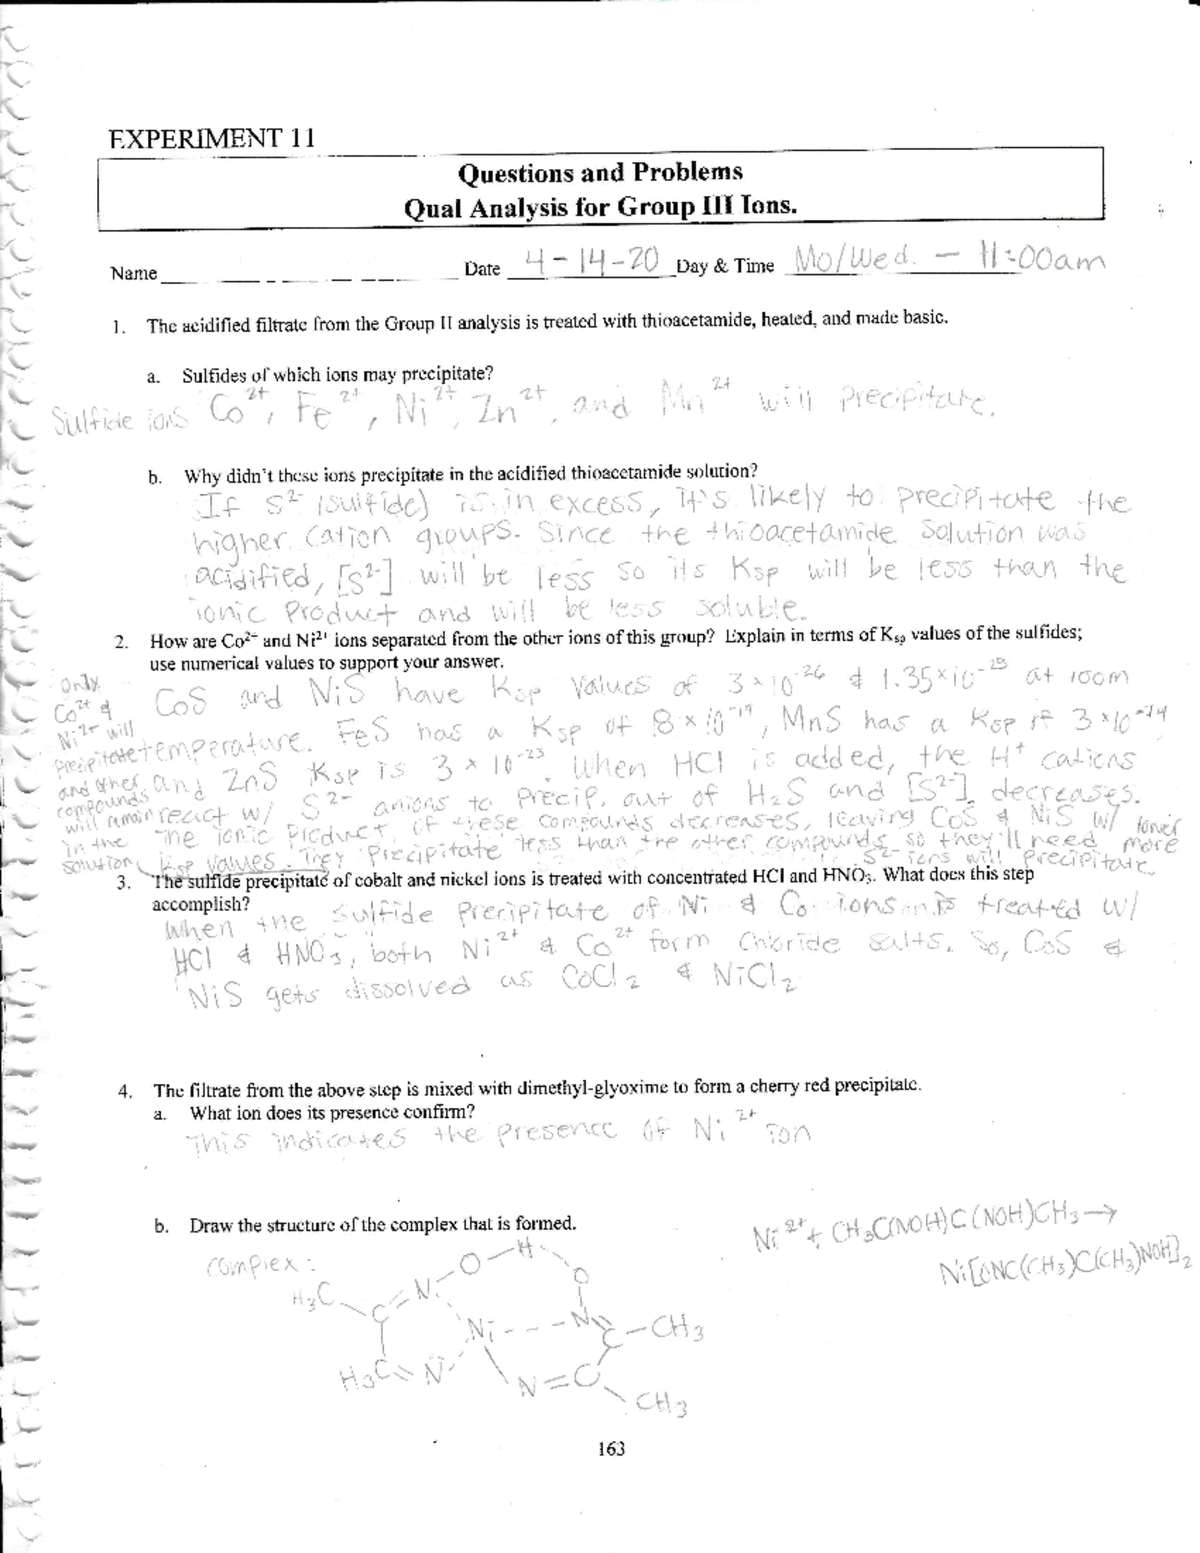 EXPERIMENT 11
Questions and Problems
Qual Analysis for Group III Ions.
Name Date 4-14-20 Day & Time Mo/Wed. - 11:00am
1. The acidified filtrate from the Group II analysis is treated with thioacetamide, heated, and made basic.
a. Sulfides of which ions may precipitate?
Sulfide ions Co²⁺, Fe²⁺, Ni²⁺, Zn²⁺, and Mn²⁺ will precipitate.
b. Why didn't these ions precipitate in the acidified thioacetamide solution?
If S²⁻ (sulfide) is in excess, it's likely to precipitate the
higher cation groups. Since the thioacetamide solution was
acidified, [S²⁻] will be less so its Ksp will be less than the
ionic product and will be less soluble.
2. How are Co²⁺ and Ni²⁺ ions separated from the other ions of this group? Explain in terms of Ksp values of the sulfides;
use numerical values to support your answer.
CoS and NiS have Ksp values of 3×10⁻²⁶ & 1.35×10⁻²⁵ at room
temperature. FeS has a Ksp of 8×10⁻¹⁹, MnS has a Ksp of 3×10⁻¹⁴
and ZnS Ksp is 3×10⁻²³. When HCl is added, the H⁺ cations
react w/ S²⁻ anions to precip. out of H₂S and [S²⁻] decreases.
The ionic product of these compounds decreases, leaving CoS & NiS w/ lower
Ksp values. They precipitate less than the other compounds so they'll need more
S²⁻ ions will precipitate.
Only
Co²⁺ &
Ni²⁺ will
precipitate
and other
compounds
will remain
in the
solution
3. The sulfide precipitate of cobalt and nickel ions is treated with concentrated HCl and HNO₃. What does this step
accomplish?
When the sulfide precipitate of Ni & Co ions is treated w/
HCl & HNO₃, both Ni²⁺ & Co²⁺ form chloride salts. So, CoS &
NiS gets dissolved as CoCl₂ & NiCl₂
4. The filtrate from the above step is mixed with dimethyl-glyoxime to form a cherry red precipitate.
a. What ion does its presence confirm?
This indicates the presence of Ni²⁺ ion
b. Draw the structure of the complex that is formed.
Ni²⁺ + CH₃C(NOH)C(NOH)CH₃ →
Ni[ONC(CH₃)C(CH₃)NOH]₂
Complex:
O-H
O
H₃C
C
N
Ni
N
C-CH₃
H₃C
N
N=C
CH₃
163